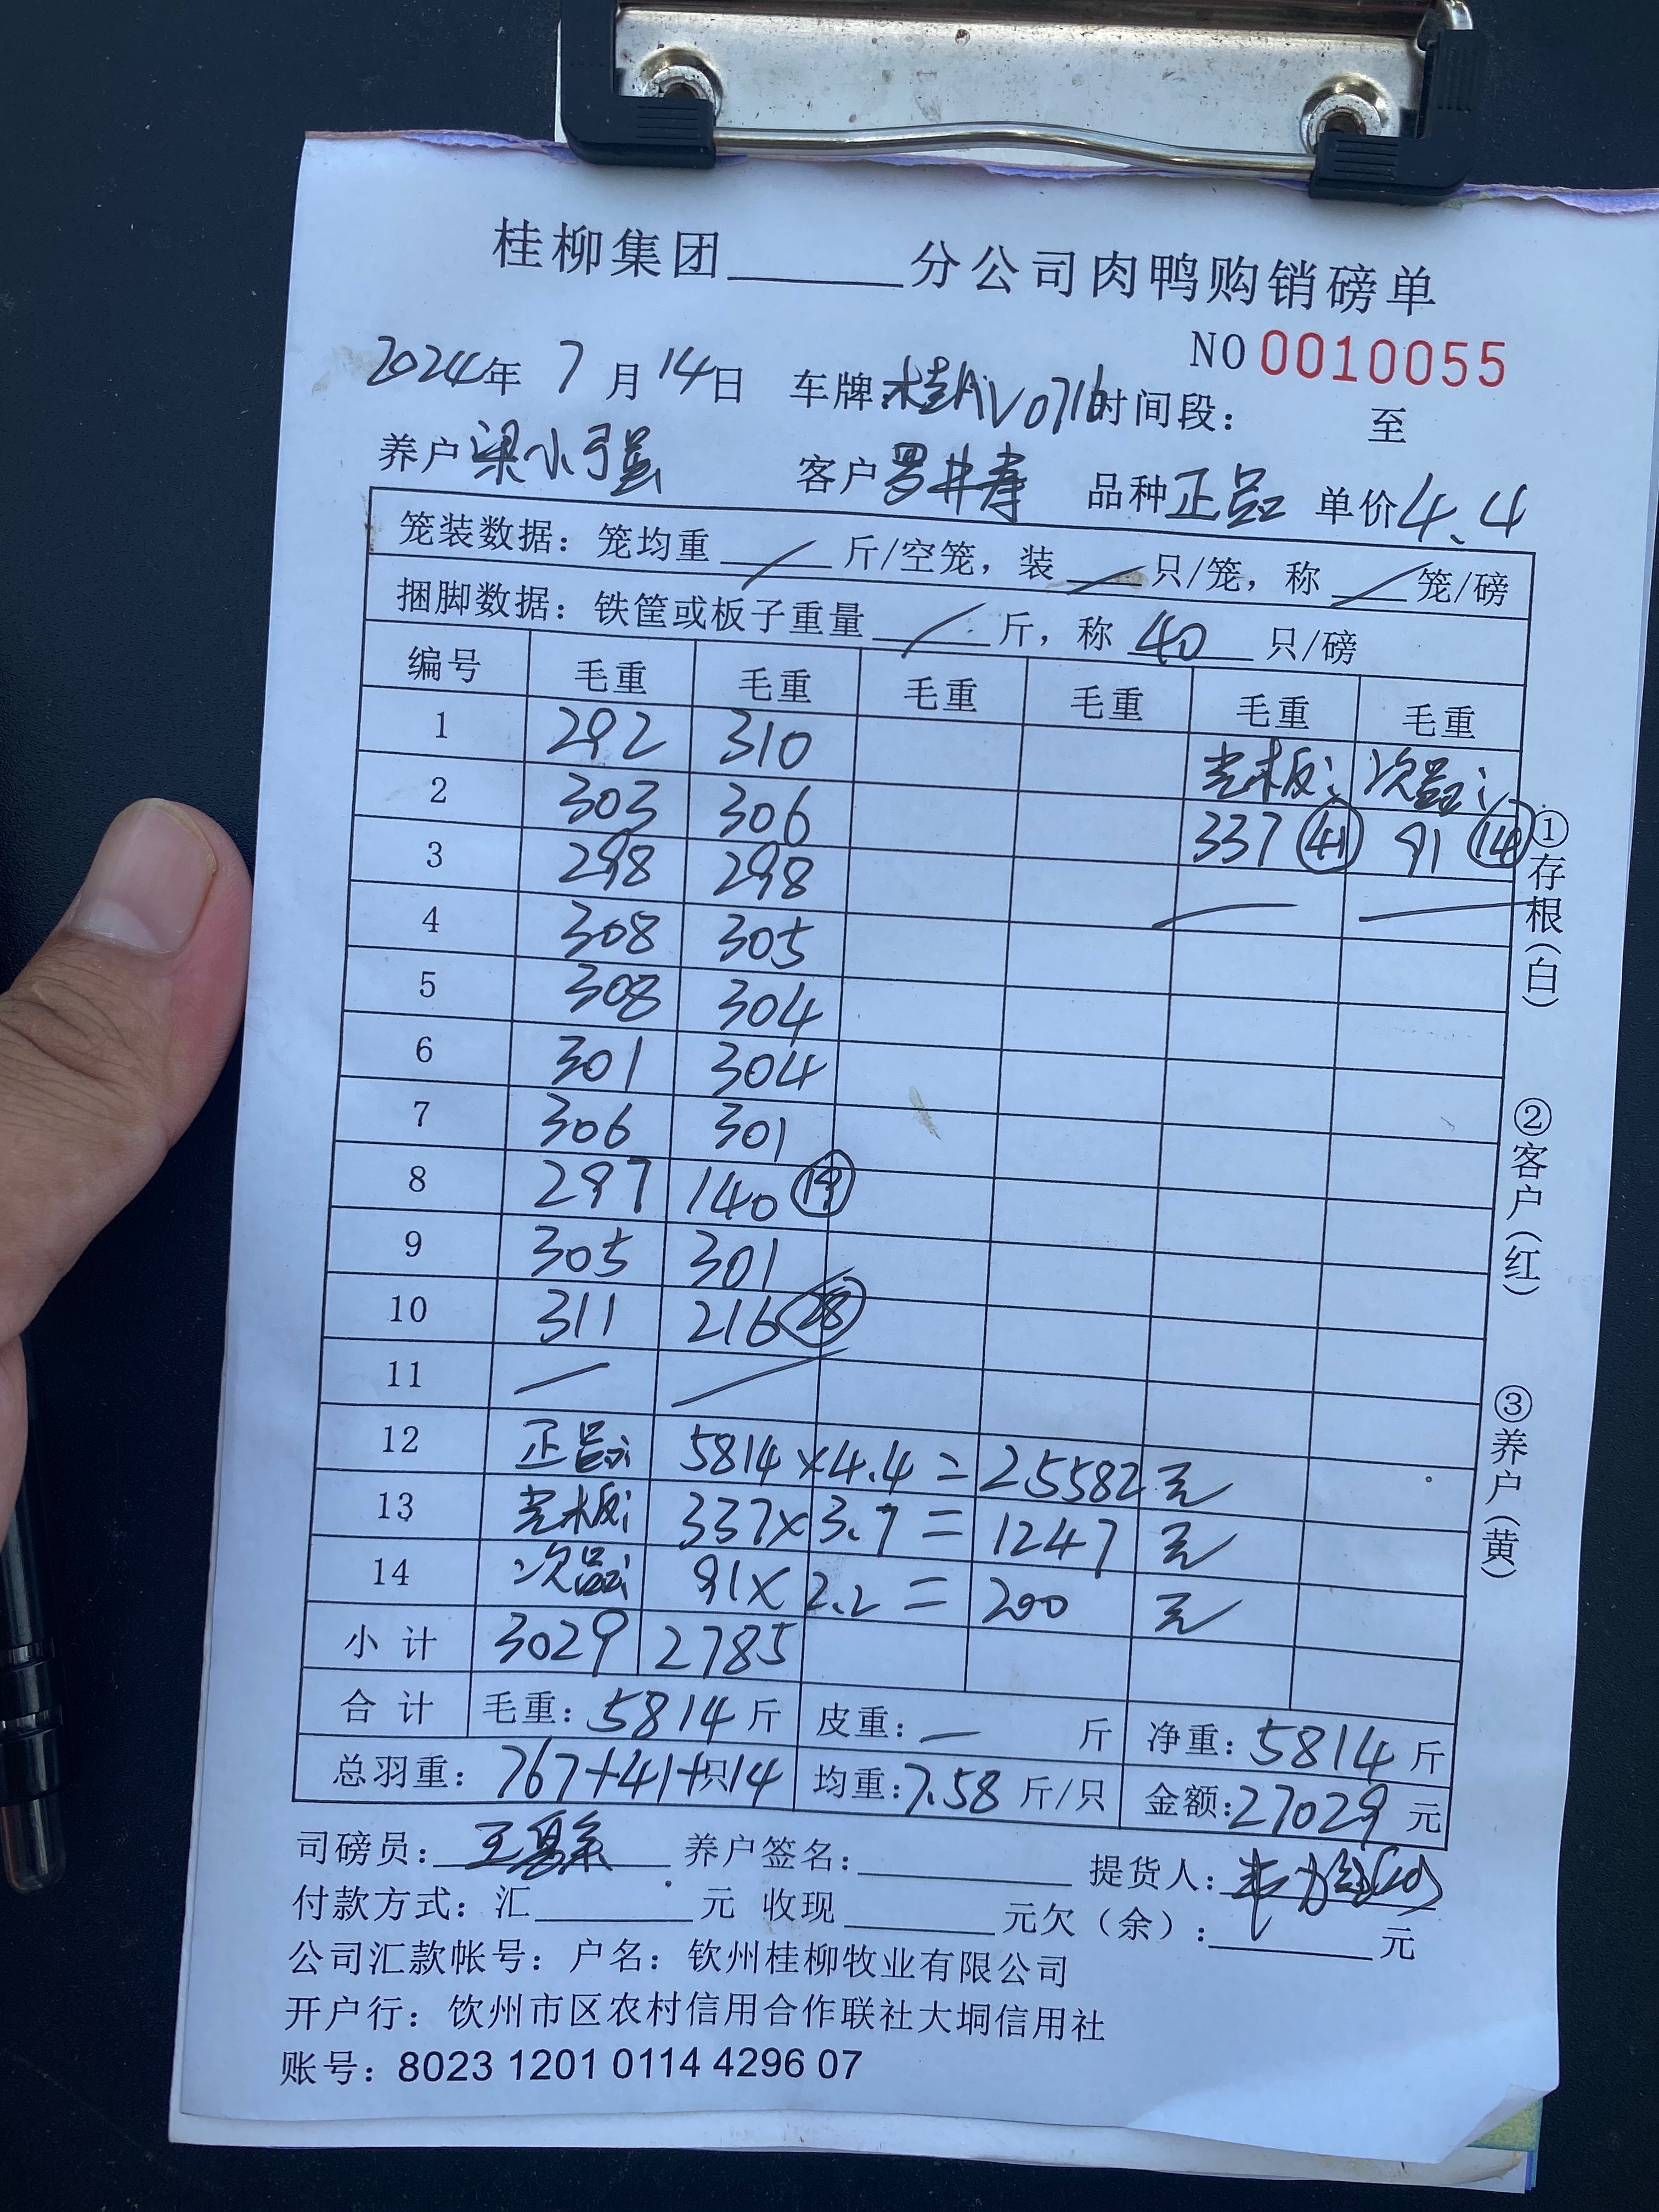 桂柳集团______分公司肉鸭购销磅单
NO 0010055
2024年 7月14日 车牌:桂AV0716时间段: 至
养户梁小强 客户罗井寿 品种正品 单价4.4
笼装数据：笼均重 / 斤/空笼，装 / 只/笼，称 / 笼/磅
捆脚数据：铁筐或板子重量 / 斤，称 40 只/磅
编号 毛重 毛重 毛重 毛重 毛重 毛重
1 292 310 光板: 次品:
2 303 306 337 (41) 91 (14)
3 298 298 — —
4 308 305
5 308 304
6 301 304
7 306 301
8 297 140 (19)
9 305 301
10 311 216 (28)
11 / /
12 正品: 5814×4.4=25582元
13 光板: 337×3.7=1247元
14 次品: 91×2.2=200元
小计 3029 2785
合计 毛重: 5814斤 皮重: — 斤 净重: 5814斤
总羽重: 767+41+只14 均重:7.58斤/只 金额:27029元
司磅员: 养户签名: 提货人:
付款方式：汇______元 收现______元欠（余）:______元
公司汇款帐号：户名：钦州桂柳牧业有限公司
开户行：钦州市区农村信用合作联社大垌信用社
账号：8023 1201 0114 4296 07
①存根(白)
②客户(红)
③养户(黄)